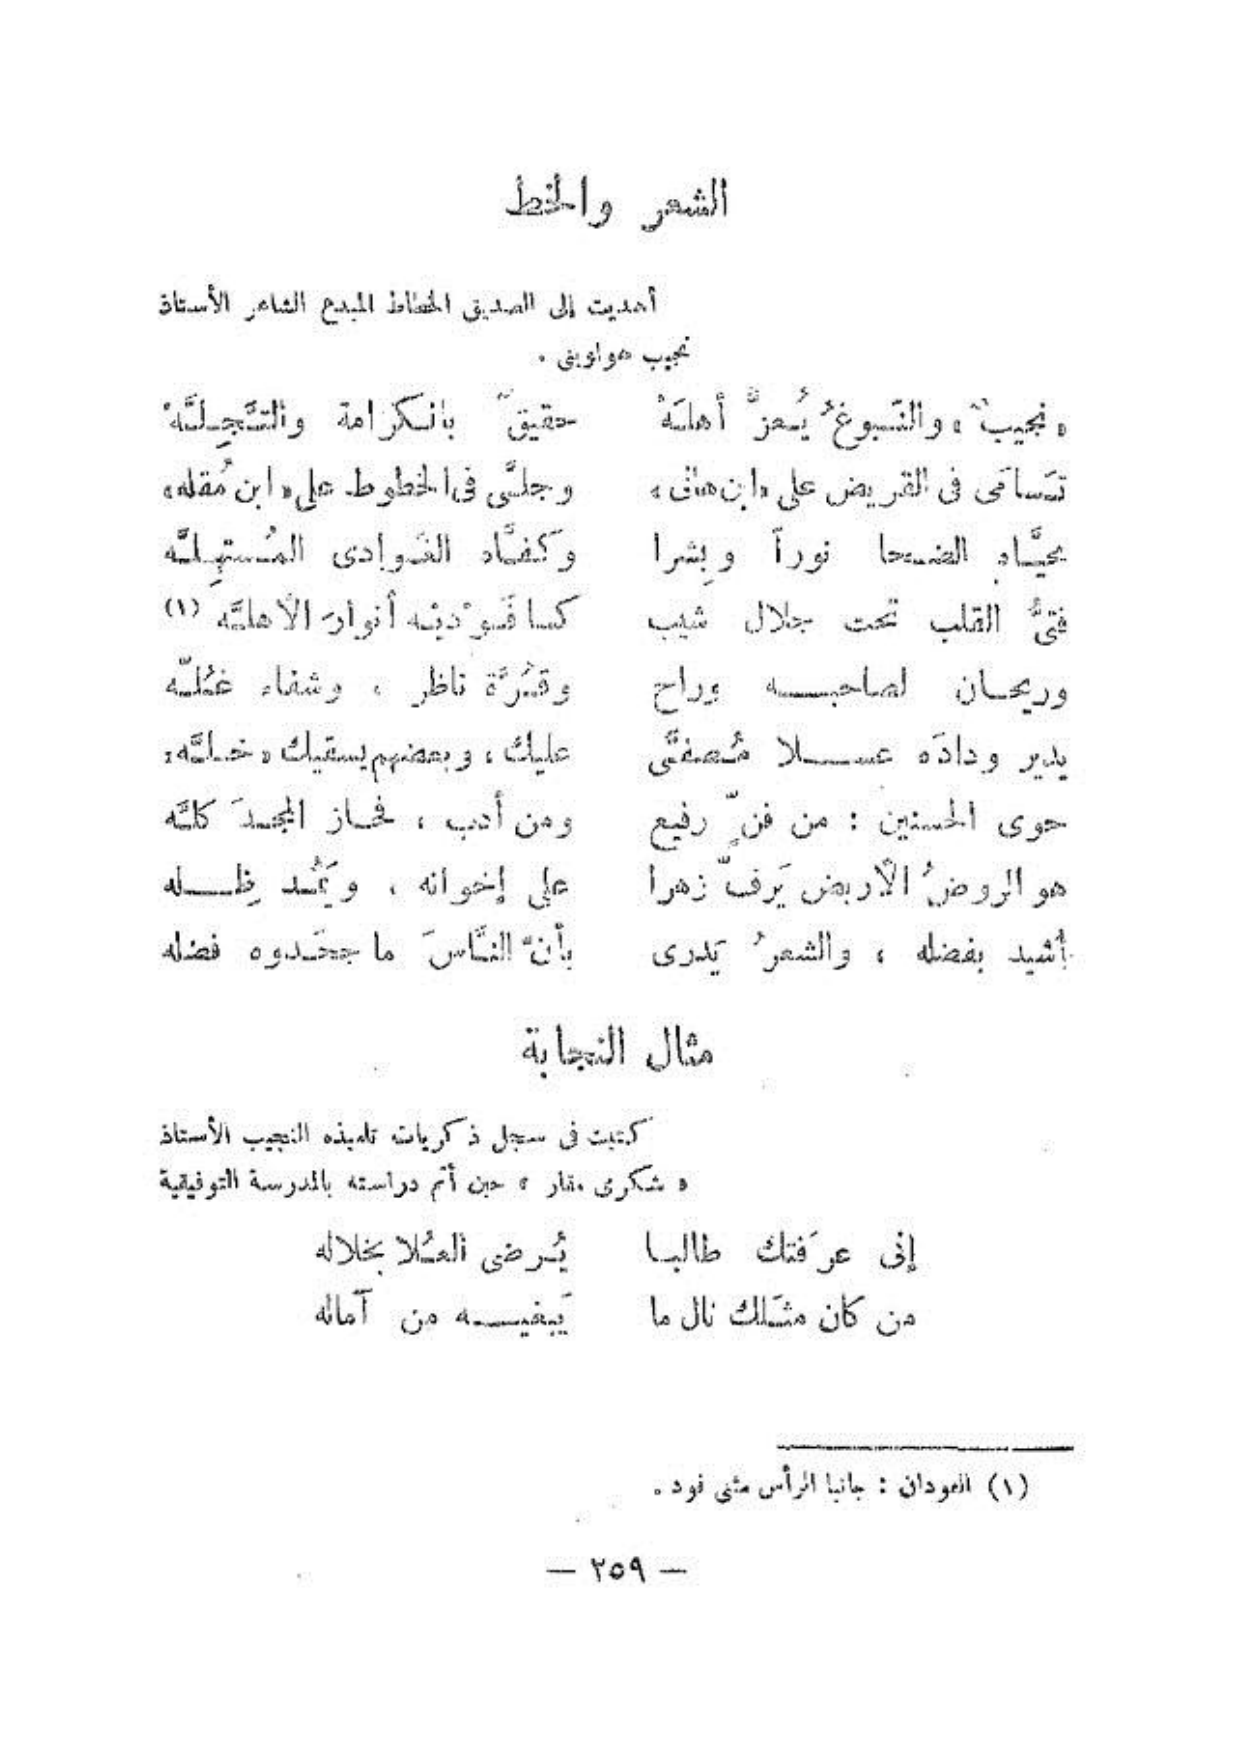 الشعر والخط
أهديت إلى الصديق الخطاط المبدع الشاعر الأستاذ
نجيب هواويني .
« نجيبٌ » والنَّبوغُ يُعزُّ أهلَهْ حقيقٌ بالكرامة والتَّجِلَّهْ
تَسامَى فى القريض على « ابن هانى » وجلَّى فى الخطوط على « ابن مُقله »
محيَّاه الضحا نوراً وبِشرا وكفَّاه الغَوادى المُستهِلَّه
فتىُّ القلب تحت جلال شيب كسا فَوْديْه أنوارَ الأهلَّه (١)
وريحان لصاحبه وراح وقُرَّة ناظر ، وشفاء غُلَّه
يدير ودادَه عسلا مُصفَّى عليك ، وبعضهم يسقيك « خلَّه »
حوى الحسنين : من فنٍّ رفيع ومن أدب ، فحاز المجدَ كلَّه
هو الروضُ الأريض يَرفُّ زهرا على إخوانه ، ويَمُد ظِله
أشيد بفضله ، والشعرُ يَدرى بأنَّ النَّاسَ ما جحَدوه فضله
مثال النجابة
كتبت فى سجل ذكريات تلميذه النجيب الأستاذ
« شكرى مقار » حين أتم دراسته بالمدرسة التوفيقية
إنى عرَفتك طالبا يُرضى العُلا بخلاله
من كان مثلَك نال ما يَبغيه من آماله
(١) الفودان : جانبا الرأس مثنى فود .
— ٢٥٩ —